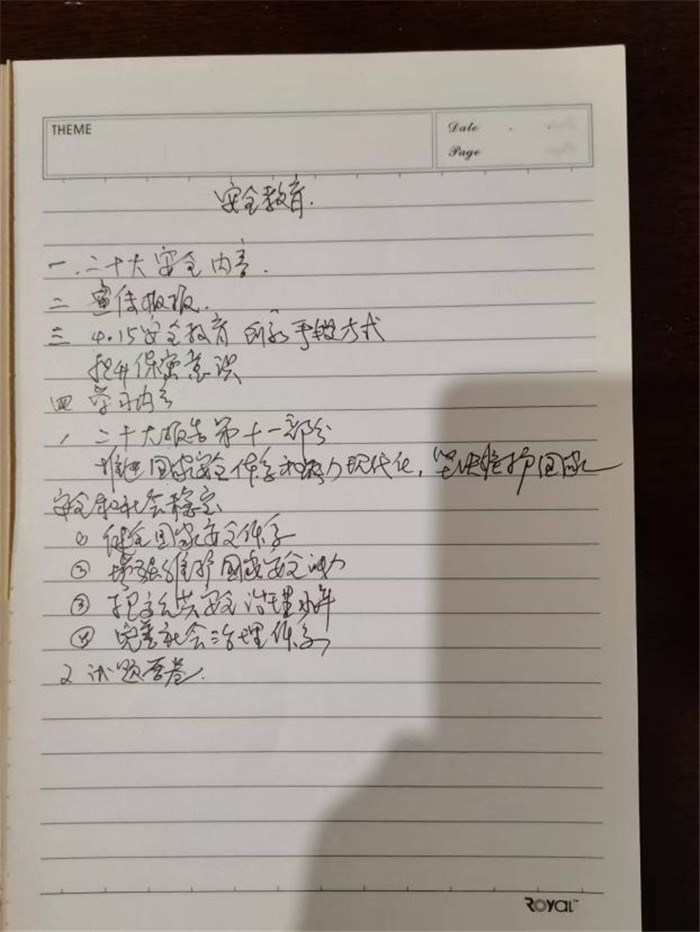 THEME
Date
Page
安全教育.
一.二十大安全内容.
二 宣传板报.
三 4.15安全教育 创新手段方式
提升保密意识
四 学习内容
1 二十大报告第十一部分
推进国家安全体系和能力现代化,坚决维护国家
安全和社会稳定
① 健全国家安全体系
② 增强维护国家安全能力
③ 提高公共安全治理水平
④ 完善社会治理体系
2 试题答卷.
ROYAL